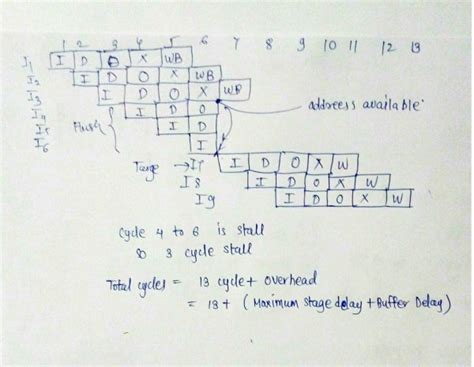 1 2 3 4 5 6 7 8 9 10 11 12 13
I1 I D O X WB
I2 I D O X WB
I3 I D O X WB
I4 I D O address available
I5 Flush I D
I6 I
Targe → I7 I D O X W
I8 I D O X W
I9 I D O X W
cycle 4 to 6 is stall
so 3 cycle stall
Total cycles = 13 cycle + overhead
= 13 + (Maximum stage delay + Buffer Delay)